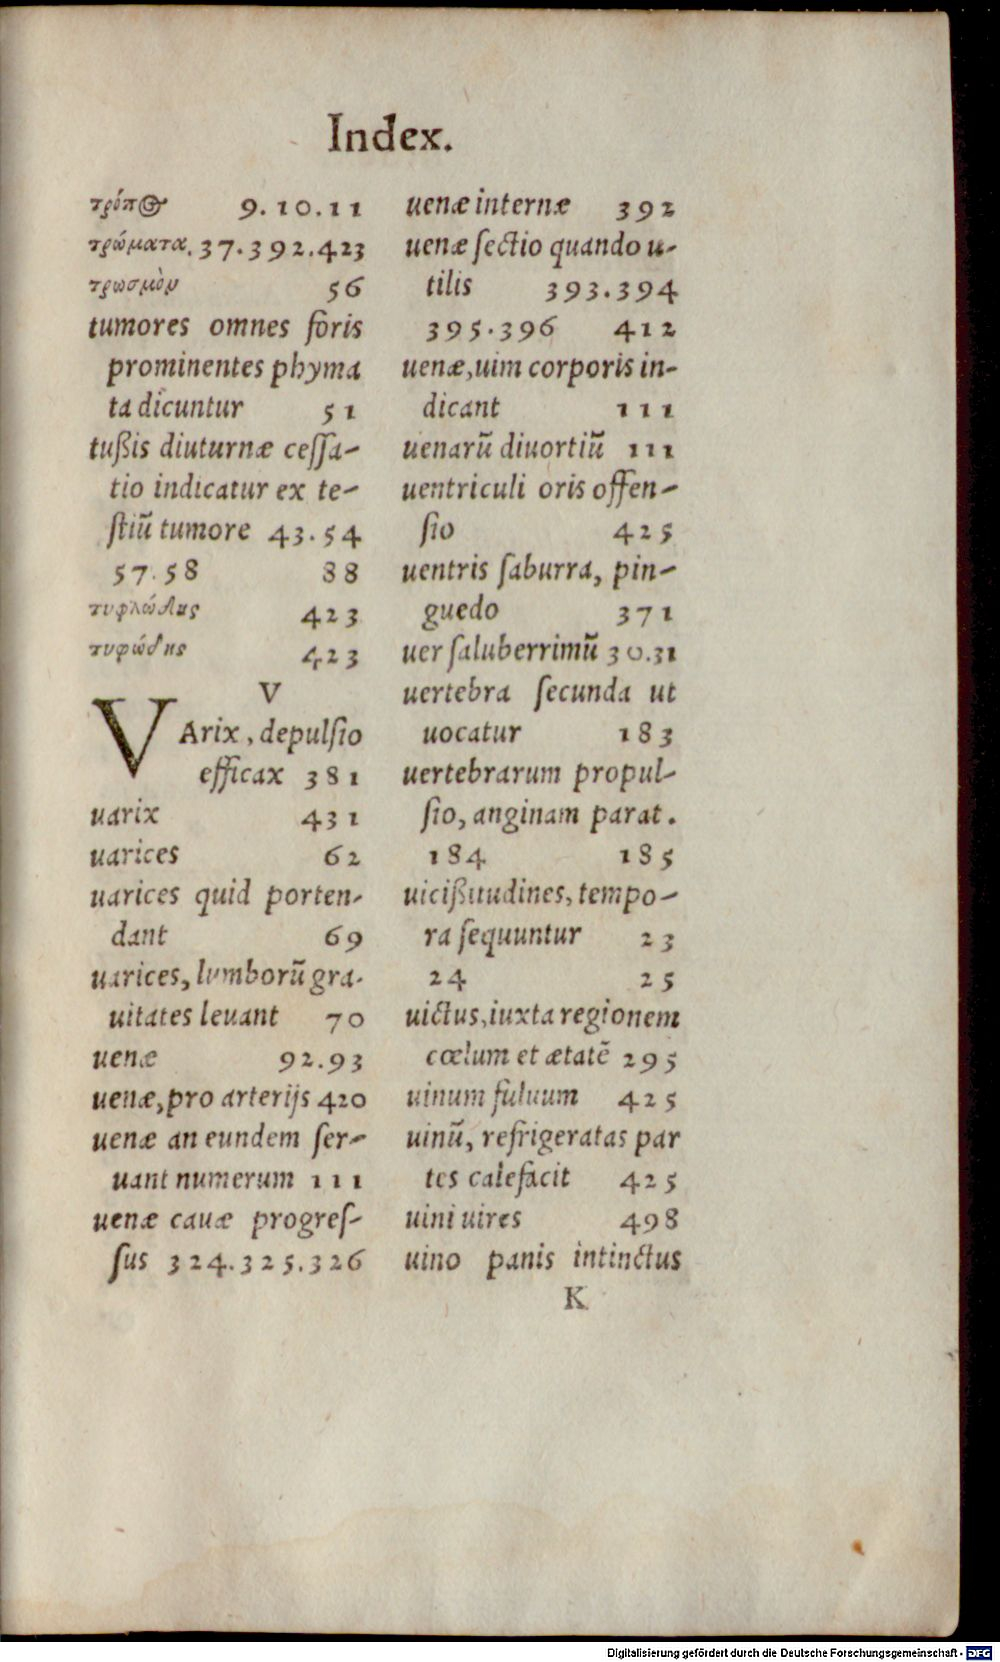 Index.
τρόπος 9.10.11
τρώματα.37.392.423
τρωσμὸν 56
tumores omnes foris
prominentes phyma
ta dicuntur 51
tußis diuturnæ ceſſa-
tio indicatur ex te-
ſtiũ tumore 43.54
57.58 88
τυφλώδης 423
τυφώδης 423
V
VArix, depulſio
efficax 381
uarix 431
uarices 62
uarices quid porten-
dant 69
uarices, lumborũ gra-
uitates leuant 70
uenæ 92.93
uenæ, pro arterijs 420
uenæ an eundem ſer-
uant numerum 111
uenæ cauæ progreſ-
ſus 324.325.326
uenæ internæ 392
uenæ ſectio quando u-
tilis 393.394
395.396 412
uenæ, uim corporis in-
dicant 111
uenarũ diuortiũ 111
uentriculi oris offen-
ſio 425
uentris ſaburra, pin-
guedo 371
uer ſaluberrimũ 30.31
uertebra ſecunda ut
uocatur 183
uertebrarum propul-
ſio, anginam parat.
184 185
uicißitudines, tempo-
ra ſequuntur 23
24 25
uictus, iuxta regionem
cœlum et ætatẽ 295
uinum fuluum 425
uinũ, refrigeratas par
tes calefacit 425
uini uires 498
uino panis intinctus
K
Digitalisierung gefördert durch die Deutsche Forschungsgemeinschaft - DFG